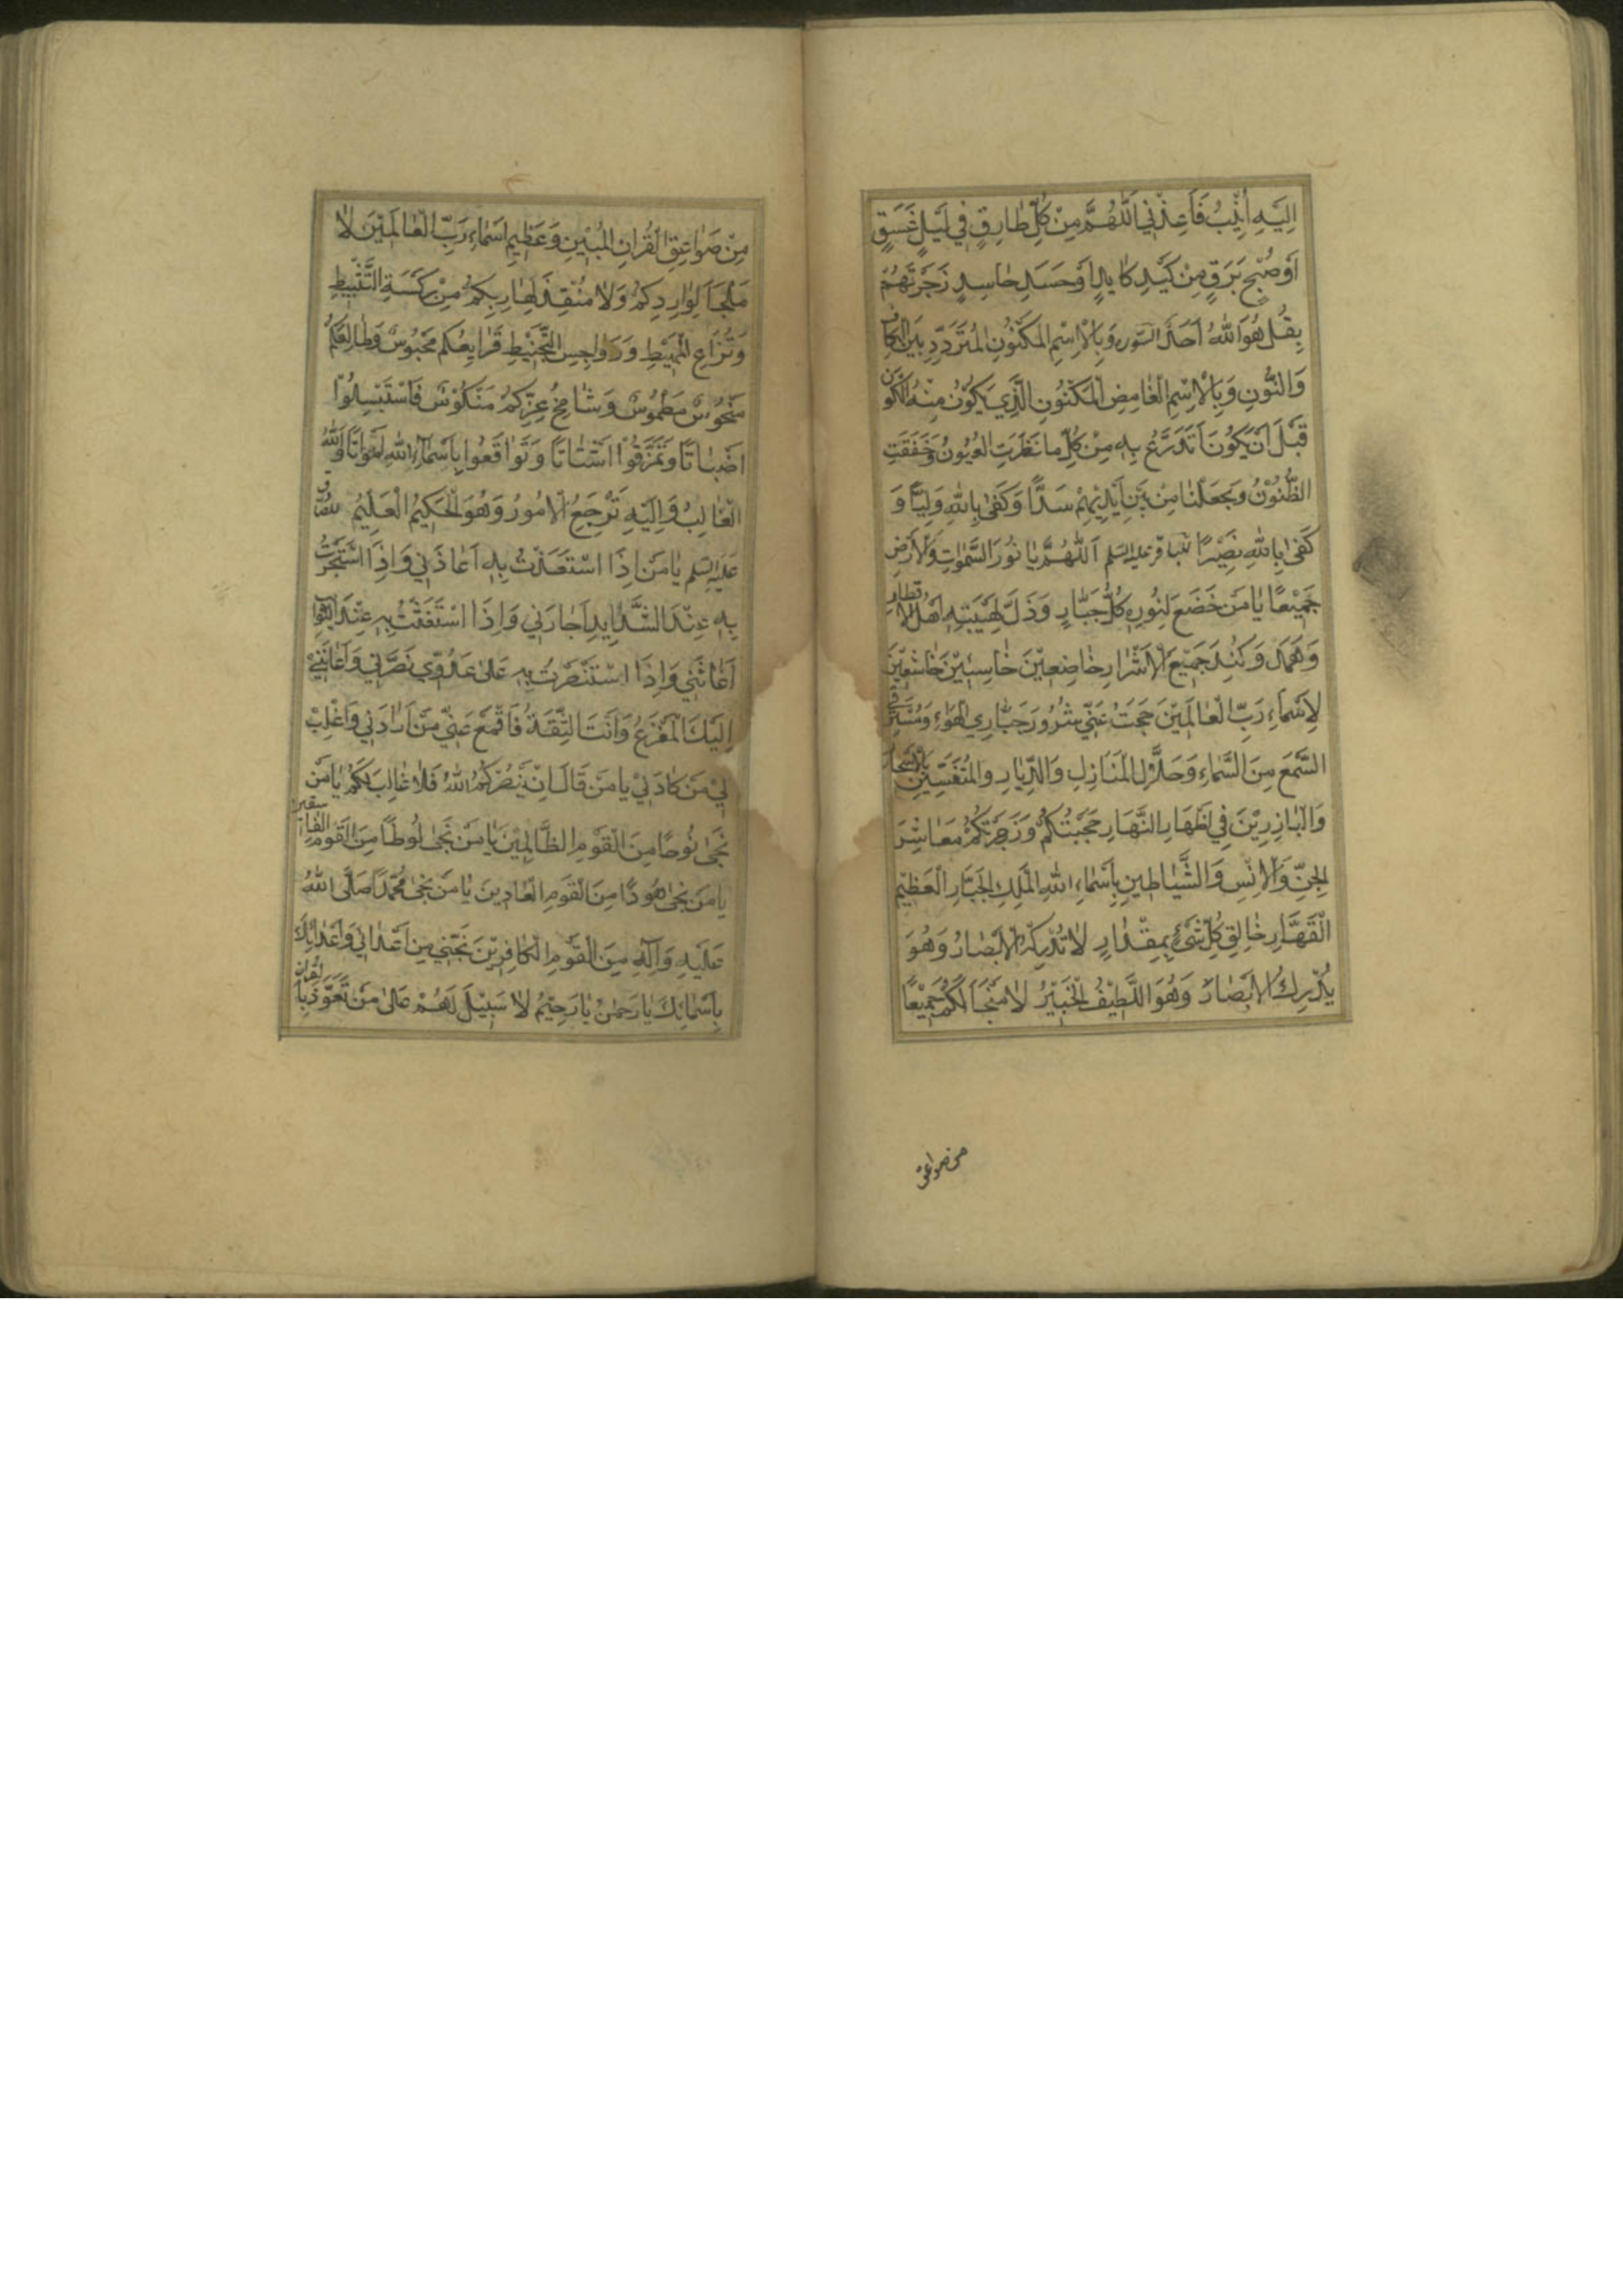 اِلَيْهِ اُنِيْبُ فَاَعِذْنِي اَللّٰهُمَّ مِنْ كُلِّ طٰارِقٍ فِي لَيْلٍ غَسَقٍ
اَوْصُبْحٍ بَرَقٍ مِنْ كَيْدِ كٰايِدٍ اَوْحَسَدِ حٰاسِدٍ زَجَرْتُهُمْ
بِقُلْ هُوَ اللّٰهُ اَحَدٌ السوره وَبِالْاِسْمِ الْمَكْنُونِ الْمُتَرَدِّدِ بَيْنَ الْكٰافِ
وَالنُّوْنِ وَبِالْاِسْمِ الْغٰامِضِ الْمَكْنُونِ الَّذِي يَكُوْنُ مِنْهُ الْكَوْنُ
قَبْلَ اَنْ يَكُوْنَ اَتَدَرَّعُ بِهٖ مِنْ كُلِّ مٰا نَظَرَتِ الْعُيُوْنُ وَخَفَقَتِ
الظُّنُوْنُ وَجَعَلْنٰا مِنْ بَيْنِ اَيْدِيْهِمْ سَدًّا وَكَفىٰ بِاللّٰهِ وَلِيًّا وَ
كَفىٰ بِاللّٰهِ نَصِيْرًا للباقر عليه السلم اَللّٰهُمَّ يٰا نُوْرَ السَّمٰوٰاتِ وَالْاَرْضِ
جَمِيْعًا يٰا مَنْ خَضَعَ لِنُورِهٖ كُلُّ جَبّٰارٍ وَذَلَّ لِهَيْبَتِهٖ اَهْلُ الْاَقْطٰارِ
وَهَمَدَ وَلَبَدَ جَمِيْعُ الْاَشْرٰارِ خٰاضِعِيْنَ خٰاسِئِيْنَ خٰاشِعِيْنَ
لِاَسْمٰاءِ رَبِّ الْعٰالَمِيْنَ حَجَبْتُ عَنِّي شُرُوْرَ جَبّٰارِي الْهَوٰاءِ وَمُسْتَرِقِي
السَّمْعِ مِنَ السَّمٰاءِ وَحُلّٰالِ الْمَنٰازِلِ وَالدِّيٰارِ وَالْمُتَغَيِّبِيْنَ بِالْاَسْحٰارِ
وَالْبٰارِزِيْنَ فِي اِظْهٰارِ النَّهٰارِ حَجَبْتُكُمْ وَزَجَرْتُكُمْ مَعٰاشِرَ
الْجِنِّ وَالْاِنْسِ وَالشَّيٰاطِيْنِ بِاَسْمٰاءِ اللّٰهِ الْمَلِكِ الْجَبّٰارِ الْعَظِيْمِ
الْقَهّٰارِ خٰالِقِ كُلِّ شَيْءٍ بِمِقْدٰارٍ لٰا تُدْرِكُهُ الْاَبْصٰارُ وَهُوَ
يُدْرِكُ الْاَبْصٰارَ وَهُوَ اللَّطِيْفُ الْخَبِيْرُ لٰا مَنْجَا لَكُمْ جَمِيْعًا
من صواعق
مِنْ صَوٰاعِقِ الْقُرْانِ الْمُبِيْنِ وَعَظِيْمِ اَسْمٰاءِ رَبِّ الْعٰالَمِيْنَ لٰا
مَلْجَاَ لِوٰارِدِكُمْ وَلٰا مُنْقِذَ لِهٰارِبِكُمْ مِنْ رَكْسَةِ التَّثْبِيْطِ
وَنُزّٰاعِ الْمَهِيْطِ وَرَوٰاجِسِ التَّخْبِيْطِ فَرٰايِعُكُمْ مَحْبُوسٌ وَطٰالِعُكُمْ
مَنْحُوْسٌ مَطْمُوْسٌ وَشٰامِخُ عِزِّكُمْ مَنْكُوْسٌ فَاسْتَبْسِلُوْا
وَتَمَزَّقُوْا اَشْتٰاتًا وَتَوٰاقَعُوا بِاَسْمٰاءِ اللّٰهِ اَمْوٰاتًا وَاللّٰهُ
الْغٰالِبُ وَاِلَيْهِ تَرْجِعُ الْاُمُورُ وَهُوَ الْحَكِيْمُ الْعَلِيْمُ للصادق
عليه السلم يٰا مَنْ اِذَا اسْتَعَذْتُ بِهٖ اَعٰاذَنِي وَاِذَا اسْتَجَرْتُ
بِهٖ عِنْدَ الشَّدٰايِدِ اَجٰارَنِي وَاِذَا اسْتَغَثْتُ بِهٖ عِنْدَ النَّوٰائِبِ
اَغٰاثَنِي وَاِذَا اسْتَنْصَرْتُ بِهٖ عَلىٰ عَدُوِّي نَصَرَنِي وَاَعٰانَنِي
اِلَيْكَ الْمَفْزَعُ وَاَنْتَ الثِّقَةُ فَاقْمَعْ عَنِّي مَنْ اَرٰادَنِي وَاغْلِبْ
لِي مَنْ كٰادَنِي يٰا مَنْ قٰالَ اِنْ يَنْصُرْكُمُ اللّٰهُ فَلٰا غٰالِبَ لَكُمْ يٰا مَنْ
نَجّىٰ نُوْحًا مِنَ الْقَوْمِ الظّٰالِمِيْنَ يٰا مَنْ نَجّىٰ لُوطًا مِنَ الْقَوْمِ الْفٰاسِقِيْنَ
يٰا مَنْ نَجّىٰ هُودًا مِنَ الْقَوْمِ الْعٰادِينَ يٰا مَنْ نَجّىٰ مُحَمَّدًا صَلَّى اللّٰهُ
عَلَيْهِ وَآلِهٖ مِنَ الْقَوْمِ الْكٰافِرِيْنَ نَجِّنِي مِنْ اَعْدٰائِي وَاَعْدٰائِكَ
بِاَسْمٰائِكَ يٰا رَحْمٰنُ يٰا رَحِيْمُ لٰا سَبِيْلَ لَهُمْ عَلىٰ مَنْ تَعَوَّذَ بِالْقُرْانِ